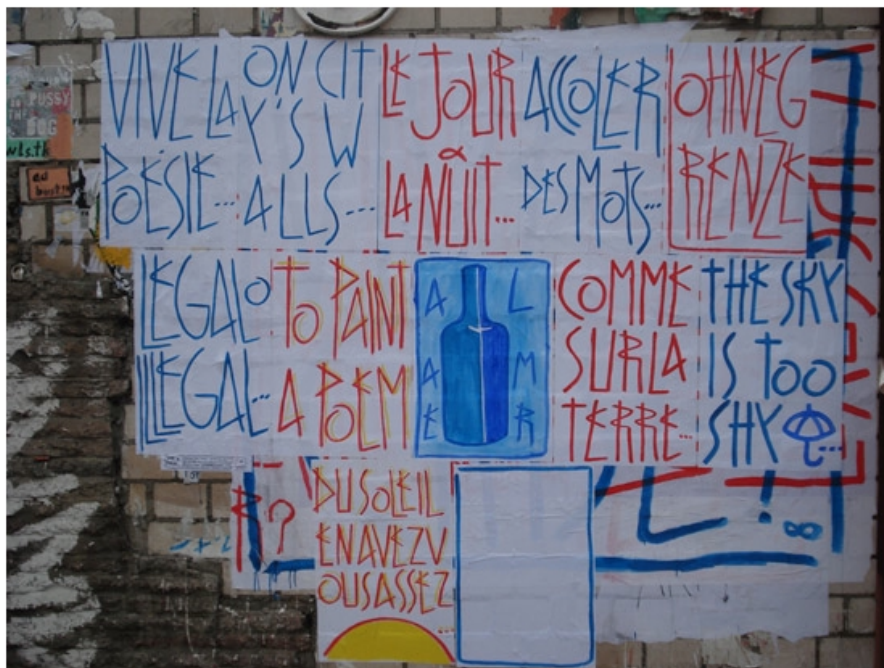 VIVE LA
POÉSIE...
ON CIT
Y'S W
ALLS...
LE JOUR
&
LA NUIT...
ACCOLER
DES MOTS...
OHNEG
RENZE
LEGAL O
ILLEGAL...
TO PAINT
A POEM
A L
A M
E R
COMME
SUR LA
TERRE...
THE SKY
IS TOO
SHY...
DU SOLEIL
EN AVEZ V
OUS ASSEZ
...
PUSSY
THE
BOG
R?
! ∞